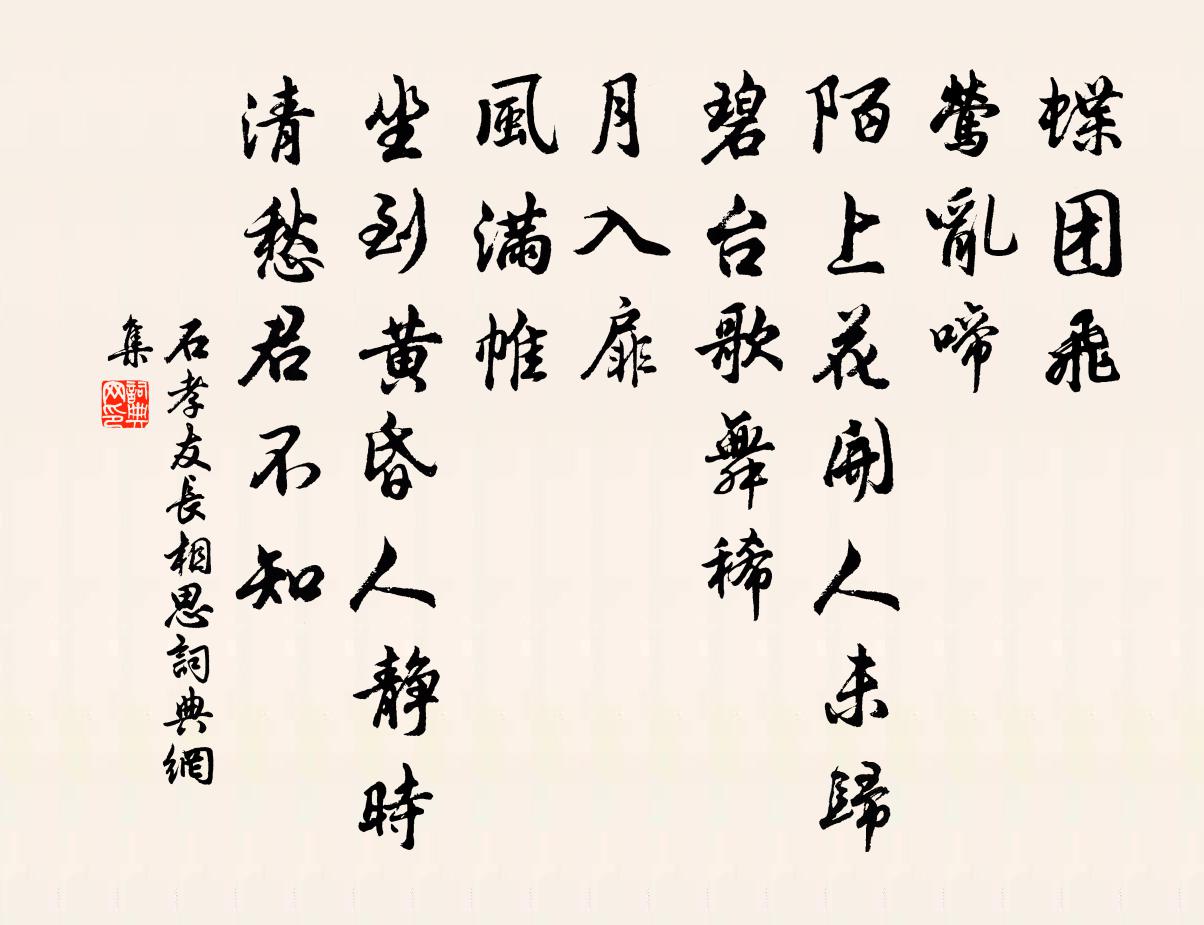 蝶团飛
鶯亂啼
陌上花開人未歸
碧台歌舞稀
月入扉
風滿帷
坐到黄昏人静時
清愁君不知
石孝友長相思詞典網
集
詞典网印